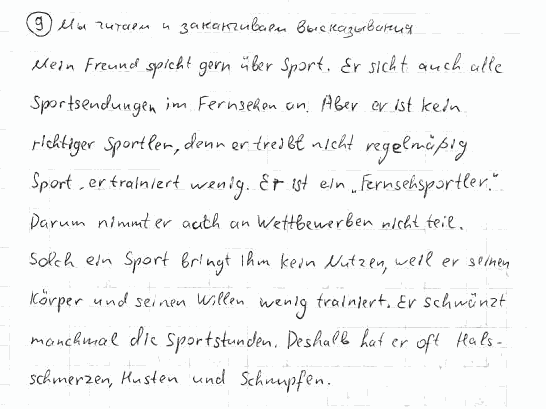 ⑨ Мы читаем и заканчиваем высказывания
Mein Freund spicht gern über Sport. Er sieht auch alle
Sportsendungen im Fernsehen an. Aber er ist kein
richtiger Sportler, denn er treibt nicht regelmäßig
Sport, er trainiert wenig. Er ist ein „Fernsehsportler."
Darum nimmt er auch an Wettbewerben nicht teil.
Solch ein Sport bringt ihm kein Nutzen, weil er seinen
Körper und seinen Willen wenig trainiert. Er schwänzt
manchmal die Sportstunden. Deshalb hat er oft Hals-
schmerzen, Husten und Schnupfen.